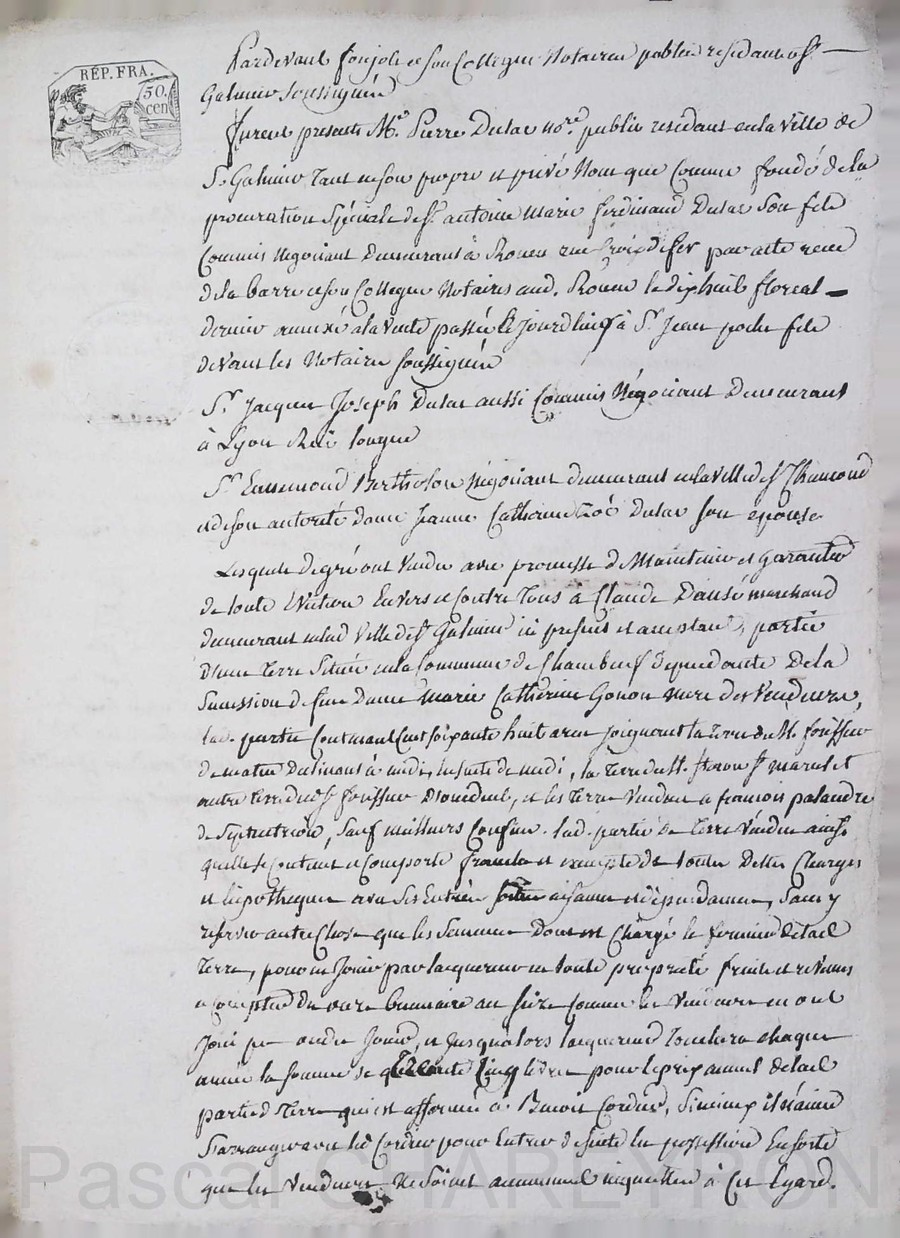 RÉP. FRA.
50.
cen
Pardevant Foujols et son Collegue Notaires publics residants a St
Galmier soussignés
furent presents Mr. Pierre Dulac nore. public residant en la ville de
St. Galmier tant en son propre et privé Nom que Comme fondé de la
procuration Spéciale de Sr. antoine Marie ferdinand Dulac Son fils
Commis Negotiant Demeurant à Rouen rue Croix de fer par acte recu
de la barre et son Collegue Notaires aud. Rouen le dixhuit floreal
dernier annexé a la Vente passée Cejourdhuy à Sr. Jean fils
devant les Notaires soussignés
Sr. Jacques Joseph Dulac aussi Commis Négotiant Demeurant
à Lyon Rue longue
Sr. Ennemond Bertholon Négotiant demeurant en la ville de St Chamond
et de son autorité dame Jeanne Catherine Zoé Dulac son epouse
Lesquels de gré ont Vendu avec promesse de Maintenir et garantir
de toute Eviction Envers et Contre Tous à Claude marchand
demeurant en lad ville de St Galmier ici present et acceptant, partie
d'une Terre Située en la Commune de Chambeuf dependante De la
Succession de feue Dame Marie Catherine Gonon mere des Vendeurs,
lad. partie Contenant Cent soixante huit ares joignant la terre du Sr.
de matin à midi, ensuite de midi, la Terre du Sr. et
autre terre dud Sr. d'occident, et les Terres Vendues a francois palandre
de Septentrion, Sauf meilleurs Confins. lad. partie de Terre Vendue ainsi
quelle se Contient et Comporte franche et exempte de toutes Dettes Charges
et hipotheques avec Ses Entrées Sorties aisances et dépendances, Sans y
reserver autre Chose que les Semences Dont est Chargé le fermier de lad
Terre, pour en Jouir par lacquereur en toute proprieté fruits et revenus
a Compter du onze brumaire an Seize Comme les Vendeurs en ont
Joui pu ou dû Jouir, et jusqualors lacquereur Touchera chaque
année la somme de Cinq livres pour le prix annuel de lad
partie de Terre qui est affermée à Benoit Cordier, Si mieux il n'aime
Sarranger avec led Cordier pour Entrer de suite en possession Ensorte
que les Vendeurs Ne Soient aucunement inquiettés à Cet Egard.
Pascal CHAREYRON